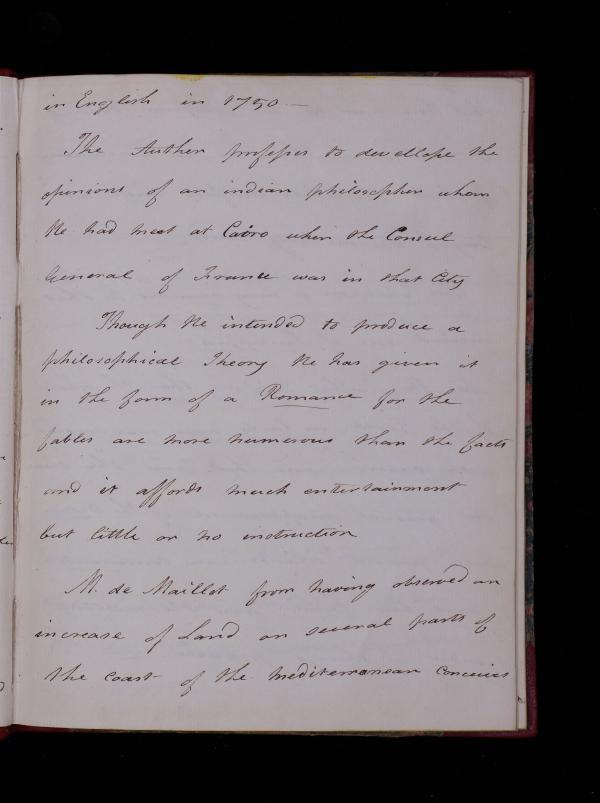 in English in 1750 —
The Author professes to devellope the
opinions of an indian philosopher whom
he had meet at Cairo when the Consul
General of France was in that City
Though he intended to produce a
philosophical Theory he has given it
in the form of a Romance for the
fables are more numerous than the facts
and it affords much entertainment
but little or no instruction
M. de Maillot from having observed an
increase of Land on several parts of
the coast of the mediterranean conceives